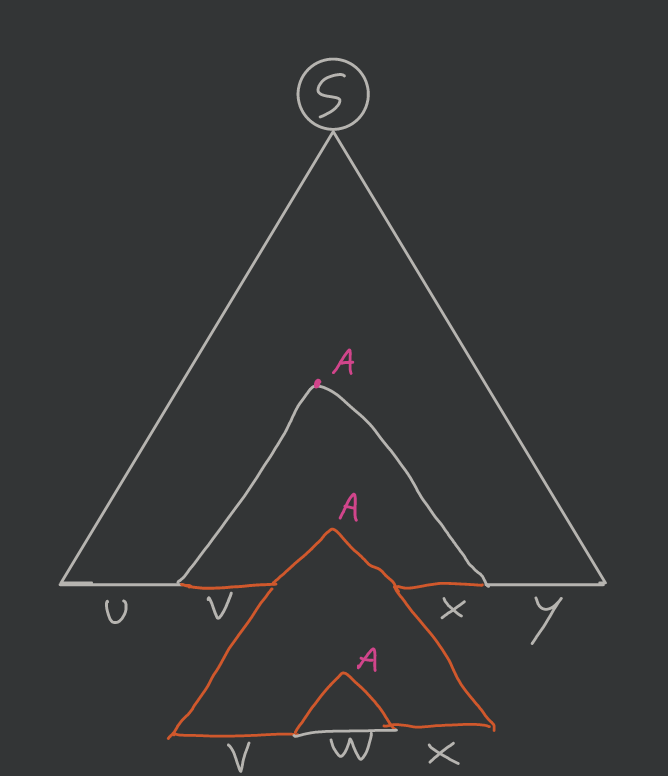 S
A
A
U V X Y
A
V W X